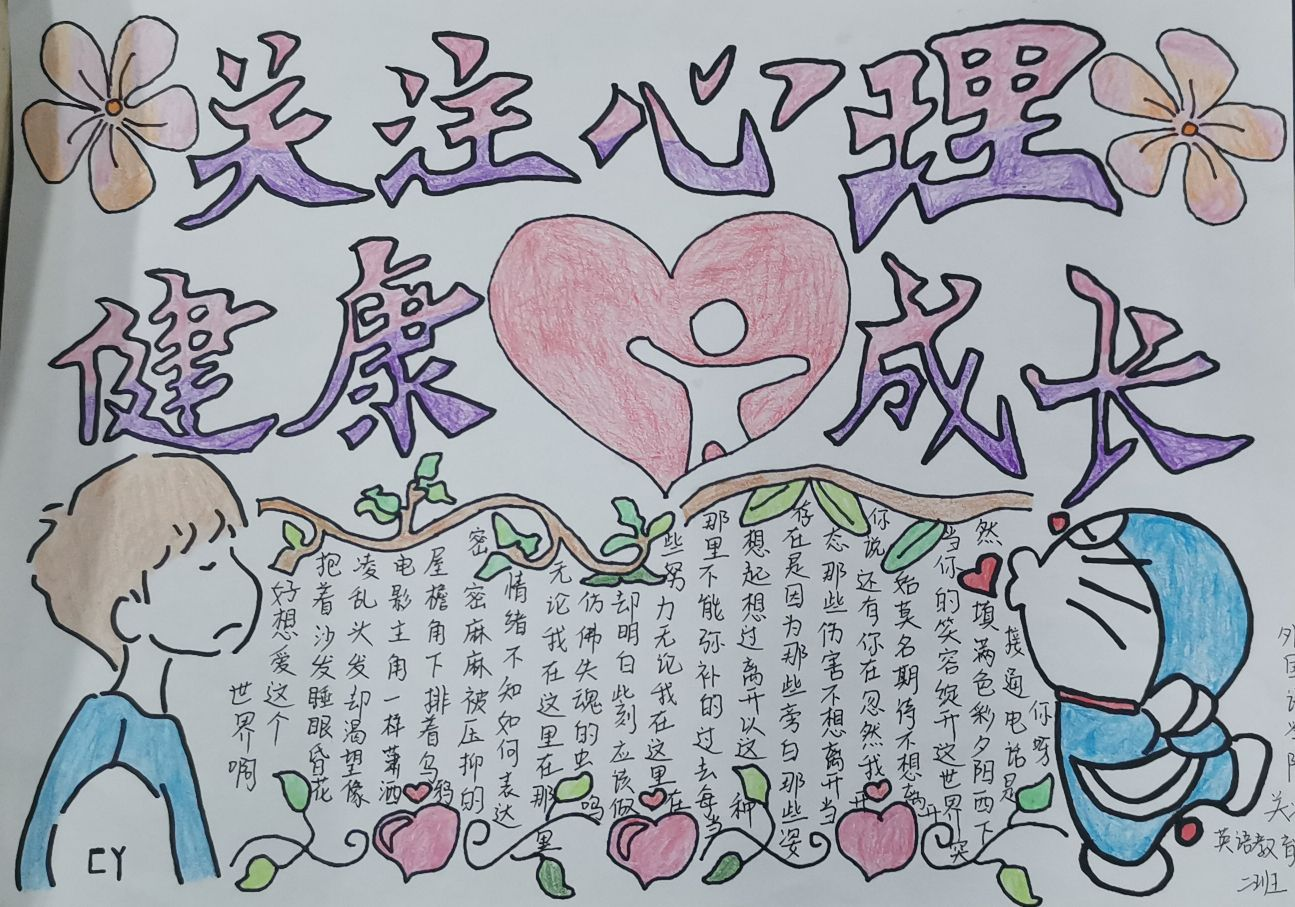 关注心理
健康成长
好想爱这个
世界啊
抱着沙发睡眼昏花
凌乱头发却渴望像
电影主角一样潇洒
屋檐角下排着乌鸦
密密麻麻被压抑的
情绪不知如何表达
无论我在这里在那里
仿佛失魂的虫鸣
却明白此刻应该做
些努力无论我在这里在
那里不能弥补的过去每当
想起想过离开以这种
存在是因为那些旁白那些姿
态那些伤害不想离开当
你说还有你在忽然我开
始莫名期待不想离开
当你的笑容绽开这世界突
然填满色彩夕阳西下
接通电话是
你呀
CY
外国语学
英语教育
二班王